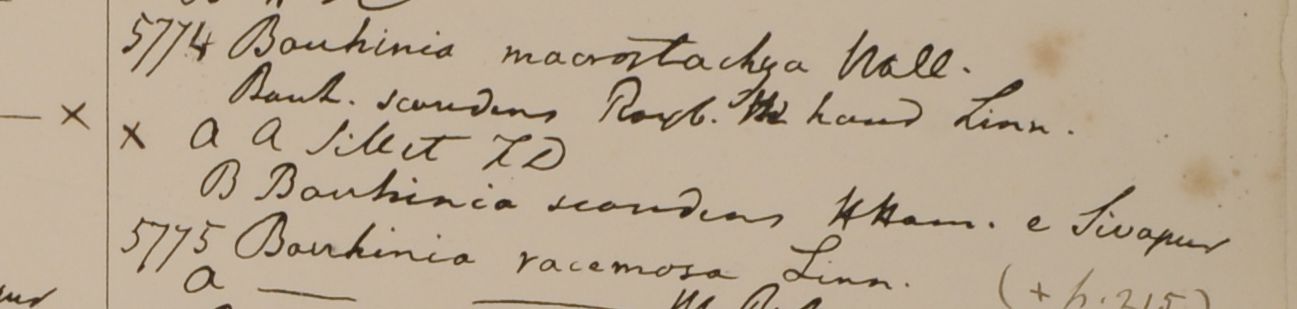 5774 Bauhinia macrostachya Wall.
Bauh. scandens Roxb. haud Linn.
— x x a A Sillet FD
B Bauhinia scandens HHam. e Sivapur
5775 Bauhinia racemosa Linn.
a — — (+ p. 215)